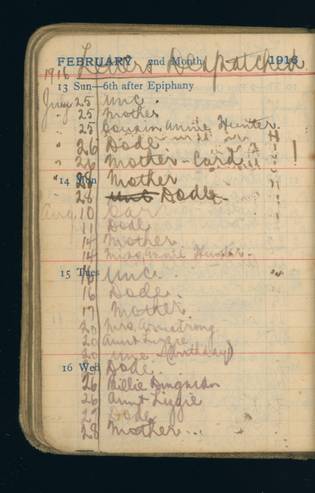 FEBRUARY 2nd Month 1916
1916 Letters Despatched
13 Sun—6th after Epiphany
July 25 Unc.
25 Mother
25 Cousin Annie Hunter
" 26 Dode
" 26 Mother - Card
" 28 Mother
14 Mon
" 28 Dode.
Aug. 10 Car
11 Dode
14 Mother
14 Miss Annie Hunter.
15 Tues
16 Unc.
16 Dode.
17 Mother.
20 Mrs. Armstrong
20 Aunt Lizzie
20 Unc. (Birthday)
16 Wed
Dode.
26 Billie
26 Aunt Lizzie
27 Dode
28 Mother